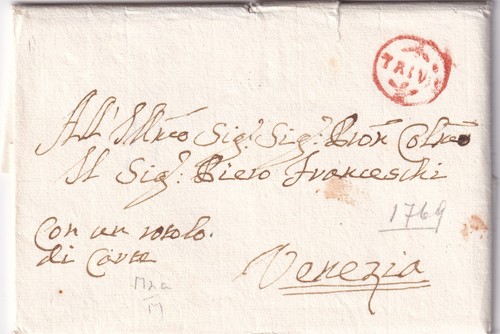 TRIV
All' Illmo Sig.r Sig.r Pron Colmo
Il Sig.r Piero Franceschi
1769
Con un rotolo
di Carte
Venezia